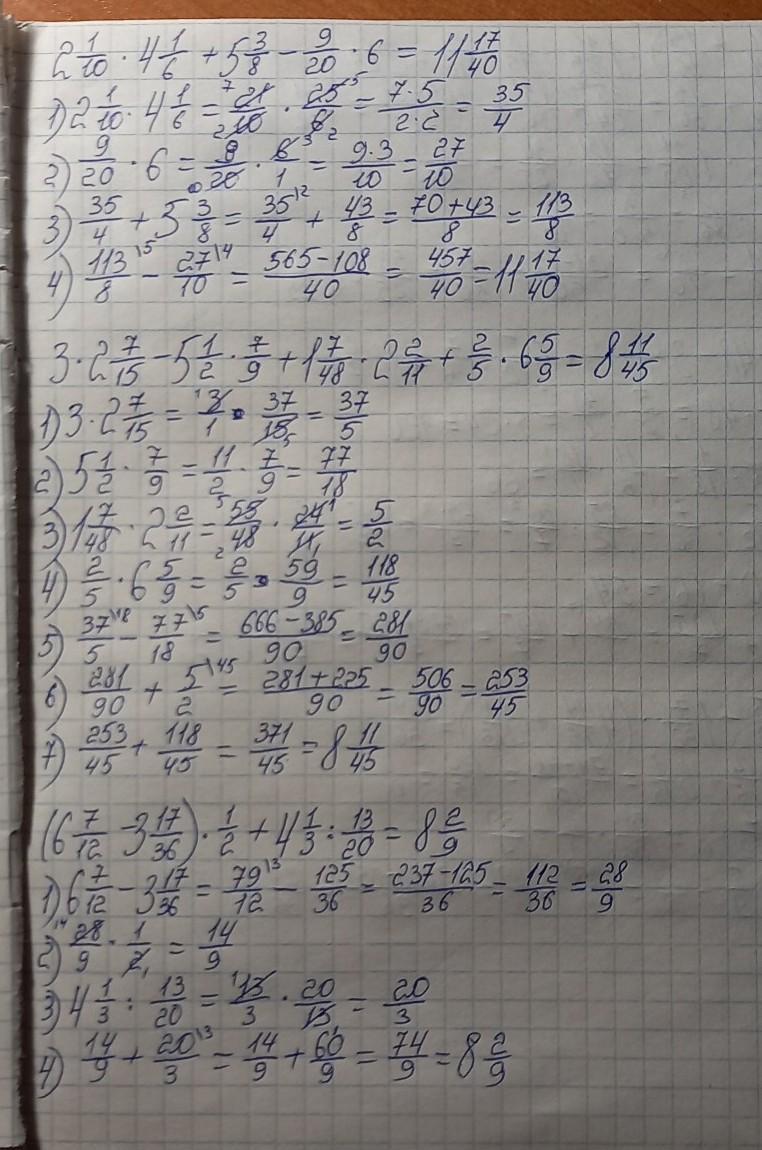 2 1/10 · 4 1/6 + 5 3/8 − 9/20 · 6 = 11 17/40
1) 2 1/10 · 4 1/6 = 21/10 · 25/6 = 7·5/2·2 = 35/4
2) 9/20 · 6 = 9/20 · 6/1 = 9·3/10 = 27/10
3) 35/4 + 5 3/8 = 35/4 \2 + 43/8 = 70+43/8 = 113/8
4) 113/8 \5 − 27/10 \4 = 565−108/40 = 457/40 = 11 17/40
3 · 2 7/15 − 5 1/2 · 7/9 + 1 7/48 · 2 2/11 + 2/5 · 6 5/9 = 8 11/45
1) 3 · 2 7/15 = 3/1 · 37/15 = 37/5
2) 5 1/2 · 7/9 = 11/2 · 7/9 = 77/18
3) 1 7/48 · 2 2/11 = 55/48 · 24/11 = 5/2
4) 2/5 · 6 5/9 = 2/5 · 59/9 = 118/45
5) 37/5 \18 − 77/18 \5 = 666−385/90 = 281/90
6) 281/90 + 5/2 \45 = 281+225/90 = 506/90 = 253/45
7) 253/45 + 118/45 = 371/45 = 8 11/45
(6 7/12 − 3 17/36) · 1/2 + 4 1/3 : 13/20 = 8 2/9
1) 6 7/12 − 3 17/36 = 79/12 \3 − 125/36 = 237−125/36 = 112/36 = 28/9
2) 28/9 · 1/2 = 14/9
3) 4 1/3 : 13/20 = 13/3 · 20/13 = 20/3
4) 14/9 + 20/3 \3 = 14/9 + 60/9 = 74/9 = 8 2/9